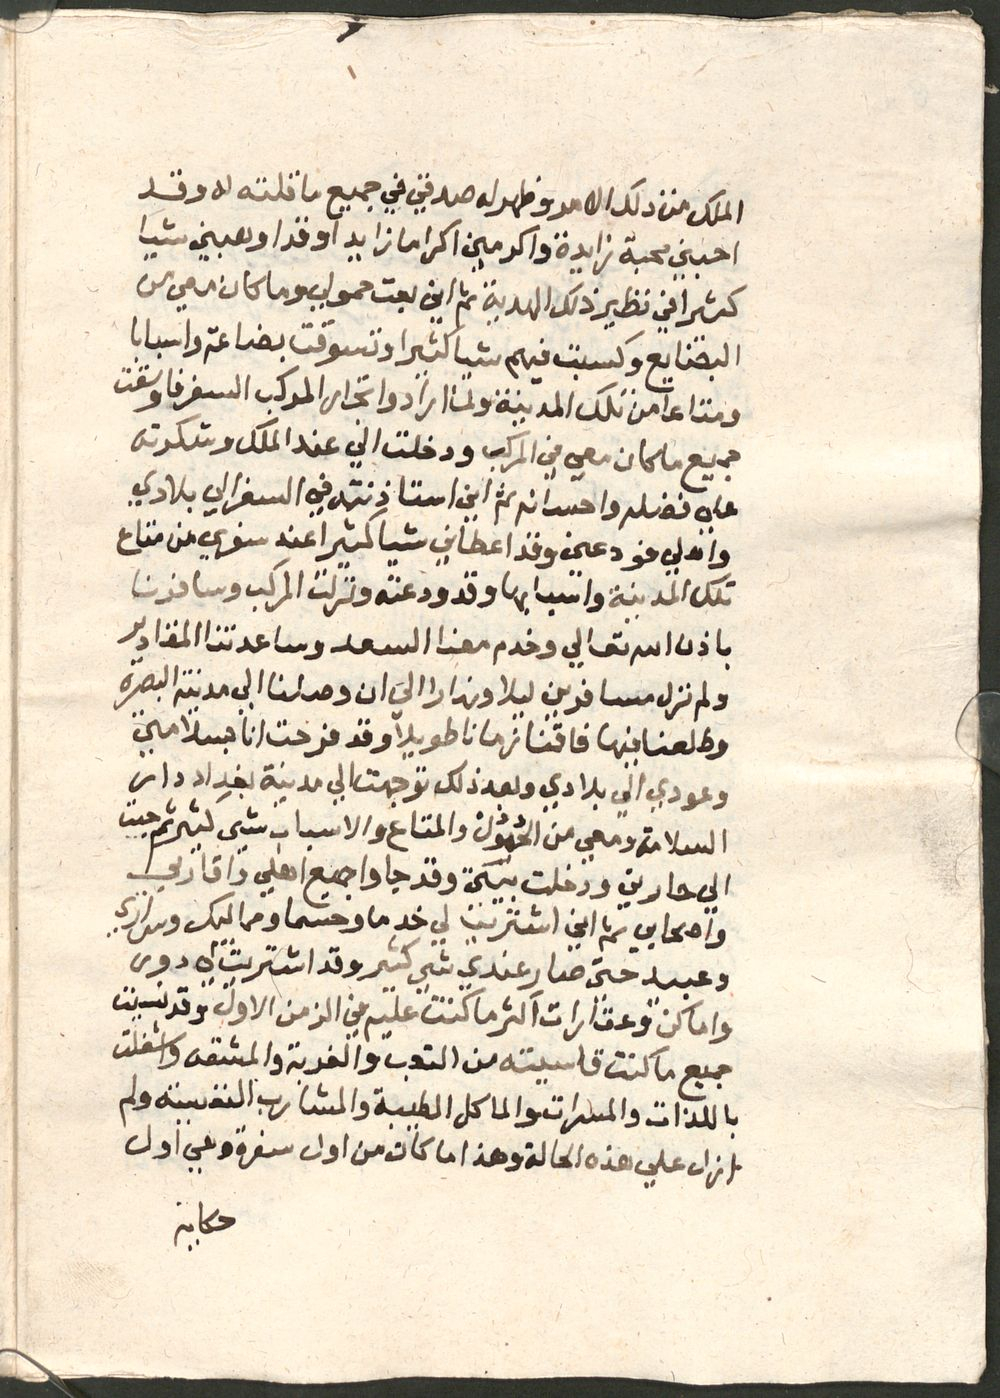 الملك من ذلك الامر وظهر له صدقي في جميع ما قلته له وقد
احبني محبة زايدة واكرمني اكراما زايدا وقد اوهبني شيا
كثيرا في نظير ذلك الهدية ثم اني بعت حمولي وما كان معي من
البضايع وكسبت فيهم شيا كثيرا وتسوقت بضاعة واسبابا
ومتاعا من تلك المدينة ولما ارادوا تجار المركب السفر فاوسقت
جميع ما كان معي في المركب ودخلت الي عند الملك وشكرته
علي فضله واحسانه ثم اني استاذنته في السفر الي بلادي
واهلي فودعني وقد اعطاني شيا كثيرا عند سفري من متاع
تلك المدينة واسبابها وقد ودعته ونزلت المركب وسافرنا
باذن الله تعالي وخدم معنا السعد وساعدتنا المقادير
ولم نزل مسافرين ليلا ونهارا الي ان وصلنا الي مدينة البصرة
وطلعنا فيها فاقمنا زمانا طويلا وقد فرحت انا بسلامتي
وعودي الي بلادي وبعد ذلك توجهت الي مدينة بغداد دار
السلامة ومعي من الحمول والمتاع والاسباب شي كثير ثم جيت
الي حارتي ودخلت بيتي وقد جاوا جميع اهلي واقاربي
واصحابي ثم اني اشتريت لي خدما وحشما ومماليك وسراري
وعبيد حتي صار عندي شي كثير وقد اشتريت لي دور
واماكن وعقارات اكثر ما كنت عليه في الزمن الاول وقد نسيت
جميع ما كنت قاسيته من التعب والغربة والمشقه واشغلت
باللذات والمسرات والماكل الطيبة والمشارب النفيسه ولم
ازل علي هذه الحالة وهذا ما كان من اول سفرة وهي اول
حكاية